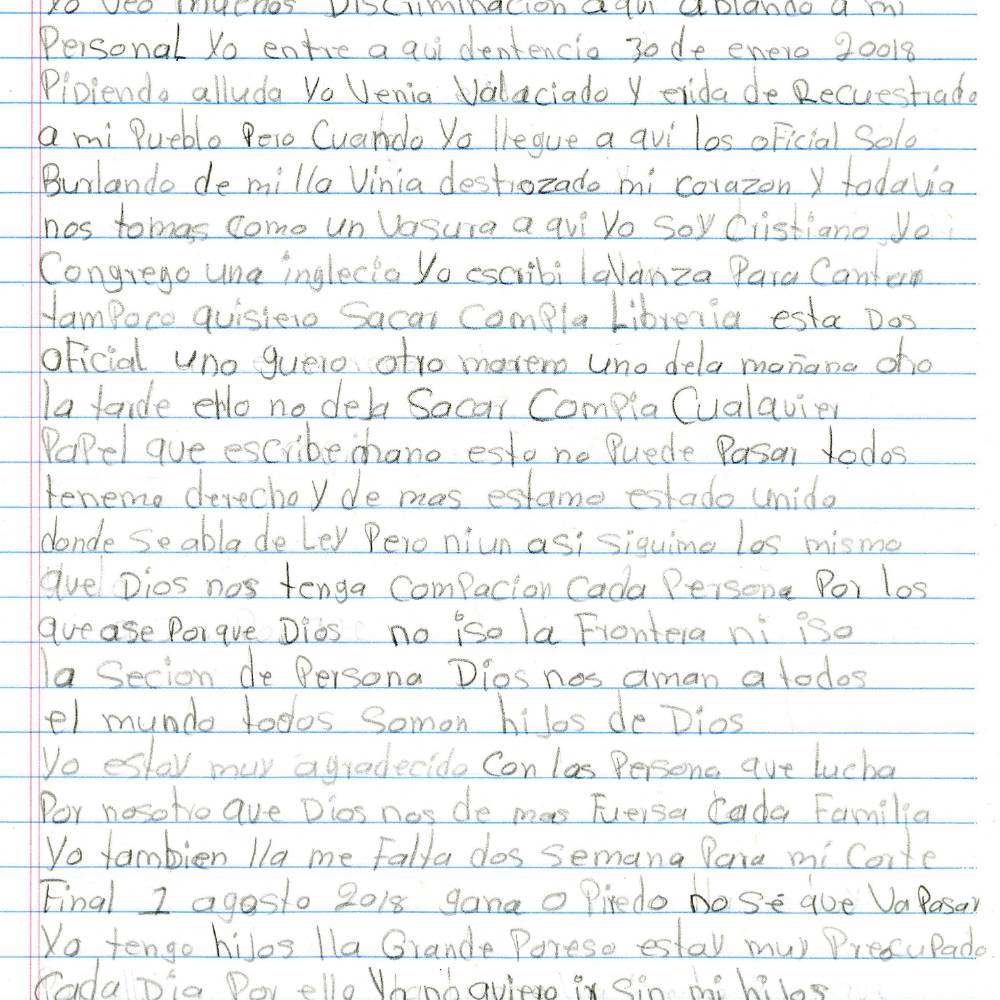 Yo veo muchos Discriminación a qui ablando a mi
Personal Yo entre a qui dentencio 30 de enero 20018
Pidiendo alluda Yo Venia Valaciado Y erida de Recuestrado
a mi Pueblo Pero Cuando Yo llegue a qui los oficial Solo
Burlando de mi lla Vinia destrozado mi corazon y todavia
nos tomas como un Vasura a qui Yo Soy Cristiano yo
Congrego una inglecia Yo escribi laVanza Para Cantar
tampoco quisiero Sacar Compia Libreria esta Dos
oficial uno guero otro moreno uno dela mañana otro
la tarde ello no deja Sacar Compia Cualquier
Papel que escribe mano esto no Puede Pasar todos
tenemo derecho y de mas estamo estado unido
donde Se abla de Ley Pero ni un asi Siguimo los mismo
que Dios nos tenga Compacion Cada Persona Por los
que ase Porque Dios no iso la Frontera ni iso
la Secion de Persona Dios nos aman a todos
el mundo todos Somon hijos de Dios
Yo estay muy agradecido Con las Persona que lucha
Por nosotro que Dios nos de mas Fuersa Cada Familia
Yo tambien lla me Falta dos Semana Para mi Corte
Final 1 agosto 2018 gana o Piedo no Se que Va Pasar
Yo tengo hijos lla Grande Poreso estay muy Preocupado
Cada Dia Por ello Yo no quiero ir Sin mi hijos